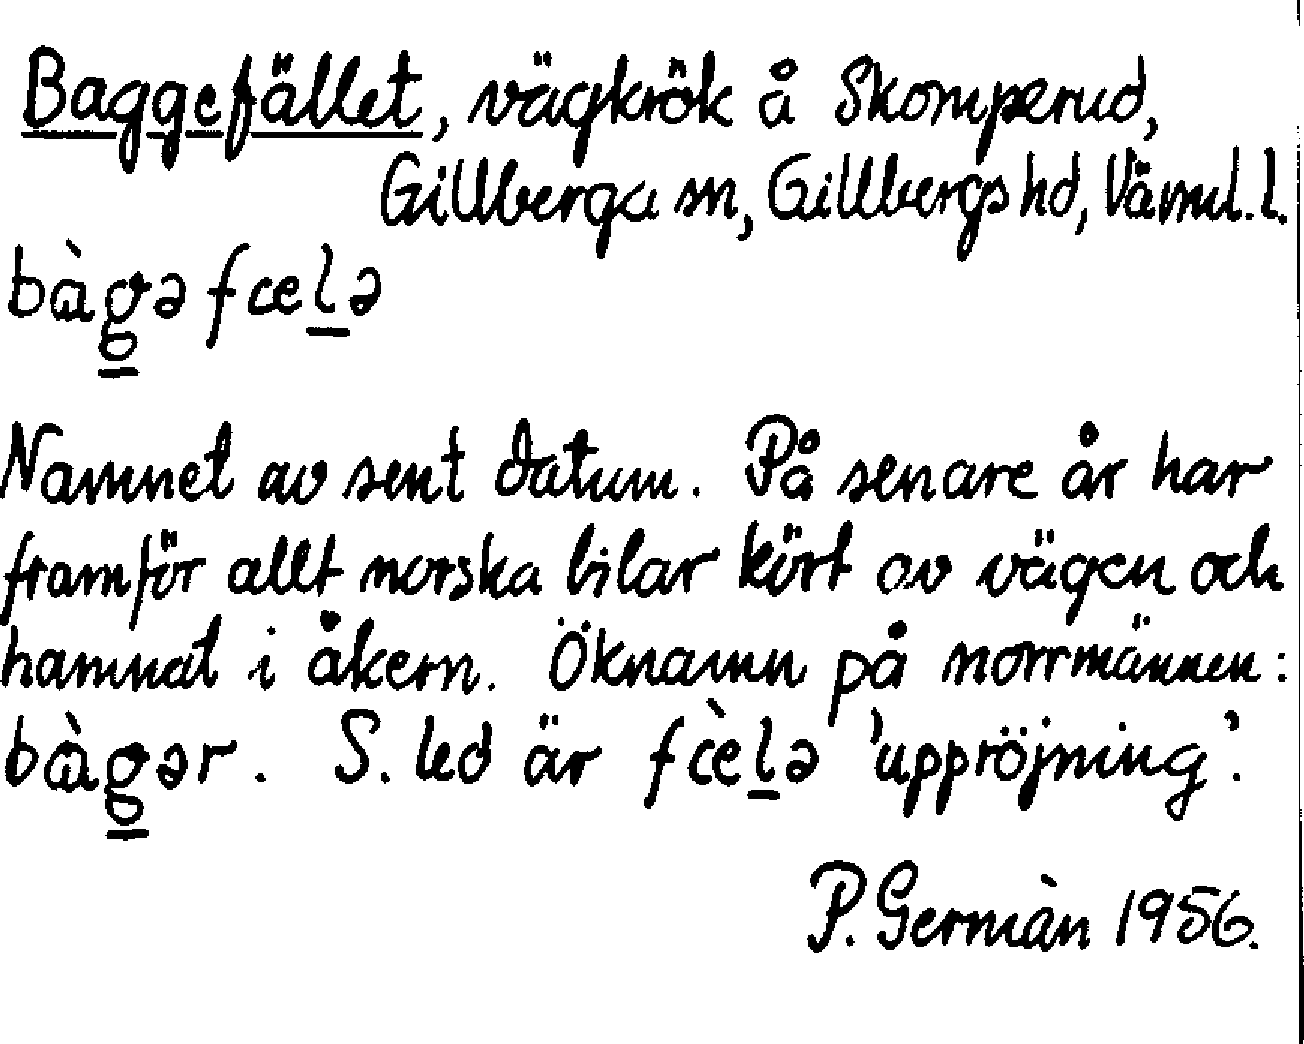 Baggefället, vägkrök å Skomperud,
Gillberga sn, Gillbergs hd, Värml. l.
bàg̲ə fœl̲ə
Namnet av sent datum. På senare år har
framför allt norska bilar kört av vägen och
hamnat i åkern. Öknamn på norrmännen:
bàg̲ər. S. led är fœ̀l̲ə 'uppröjning'.
P. Germàn 1956.